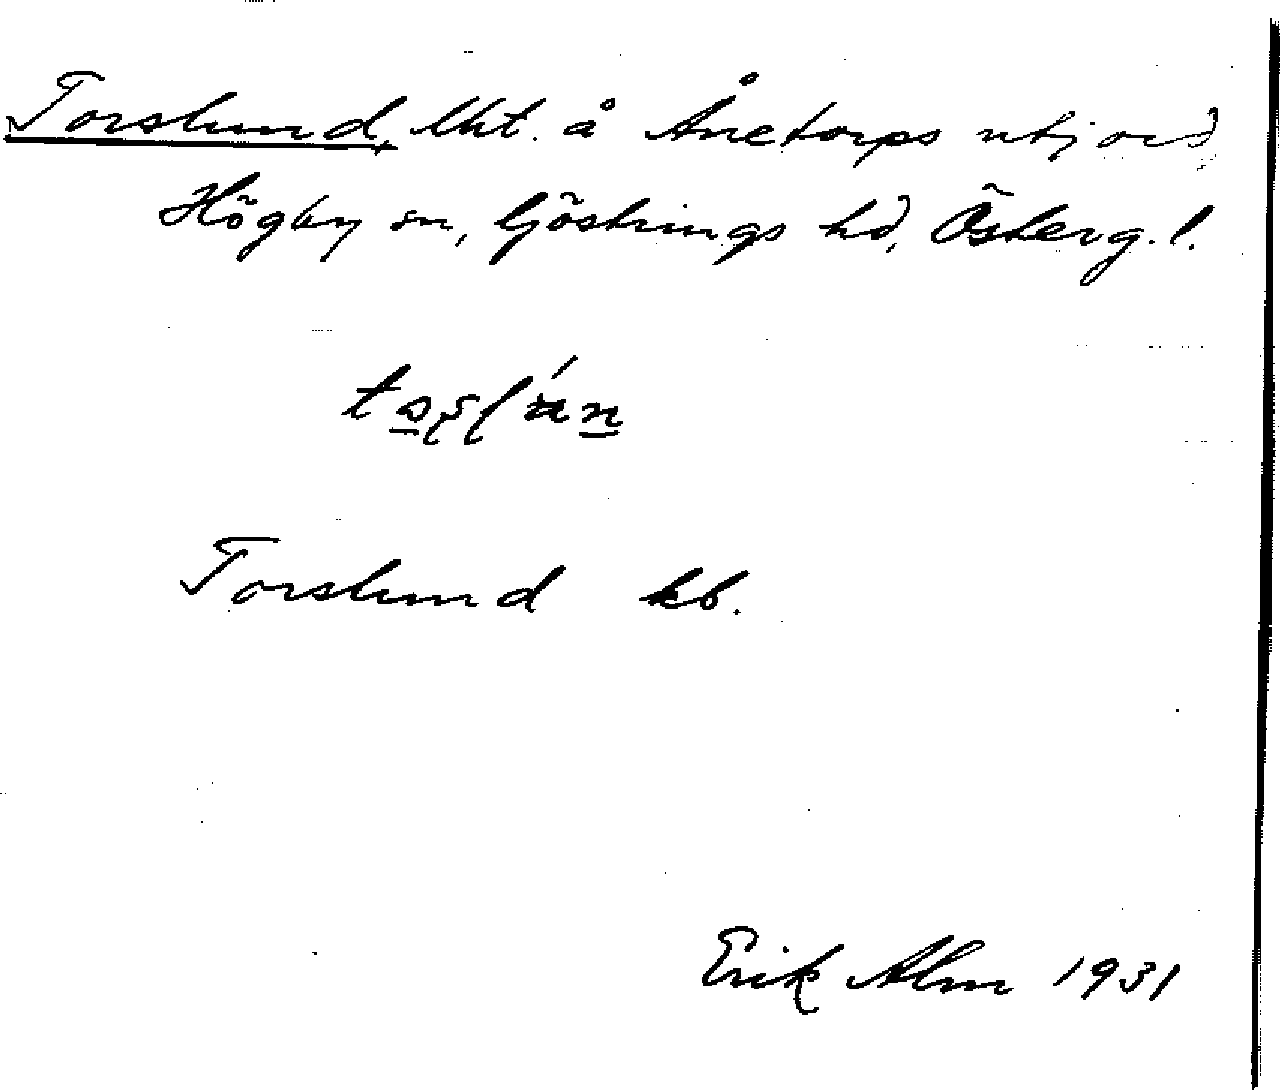 Torslund, lht. å Ånetorps utjord,
Högby sn, Göstrings hd, Österg. l.
Torslund kb.
Erik Alm 1931